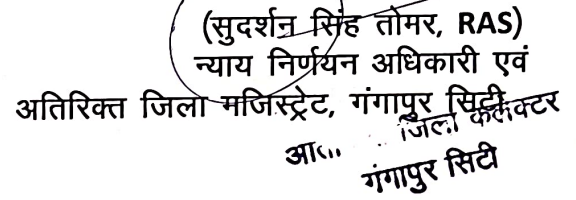 (सुदर्शन सिंह तोमर, RAS)
न्याय निर्णयन अधिकारी एवं
अतिरिक्त जिला मजिस्ट्रेट, गंगापुर सिटी
जिला कलक्टर
गंगापुर सिटी